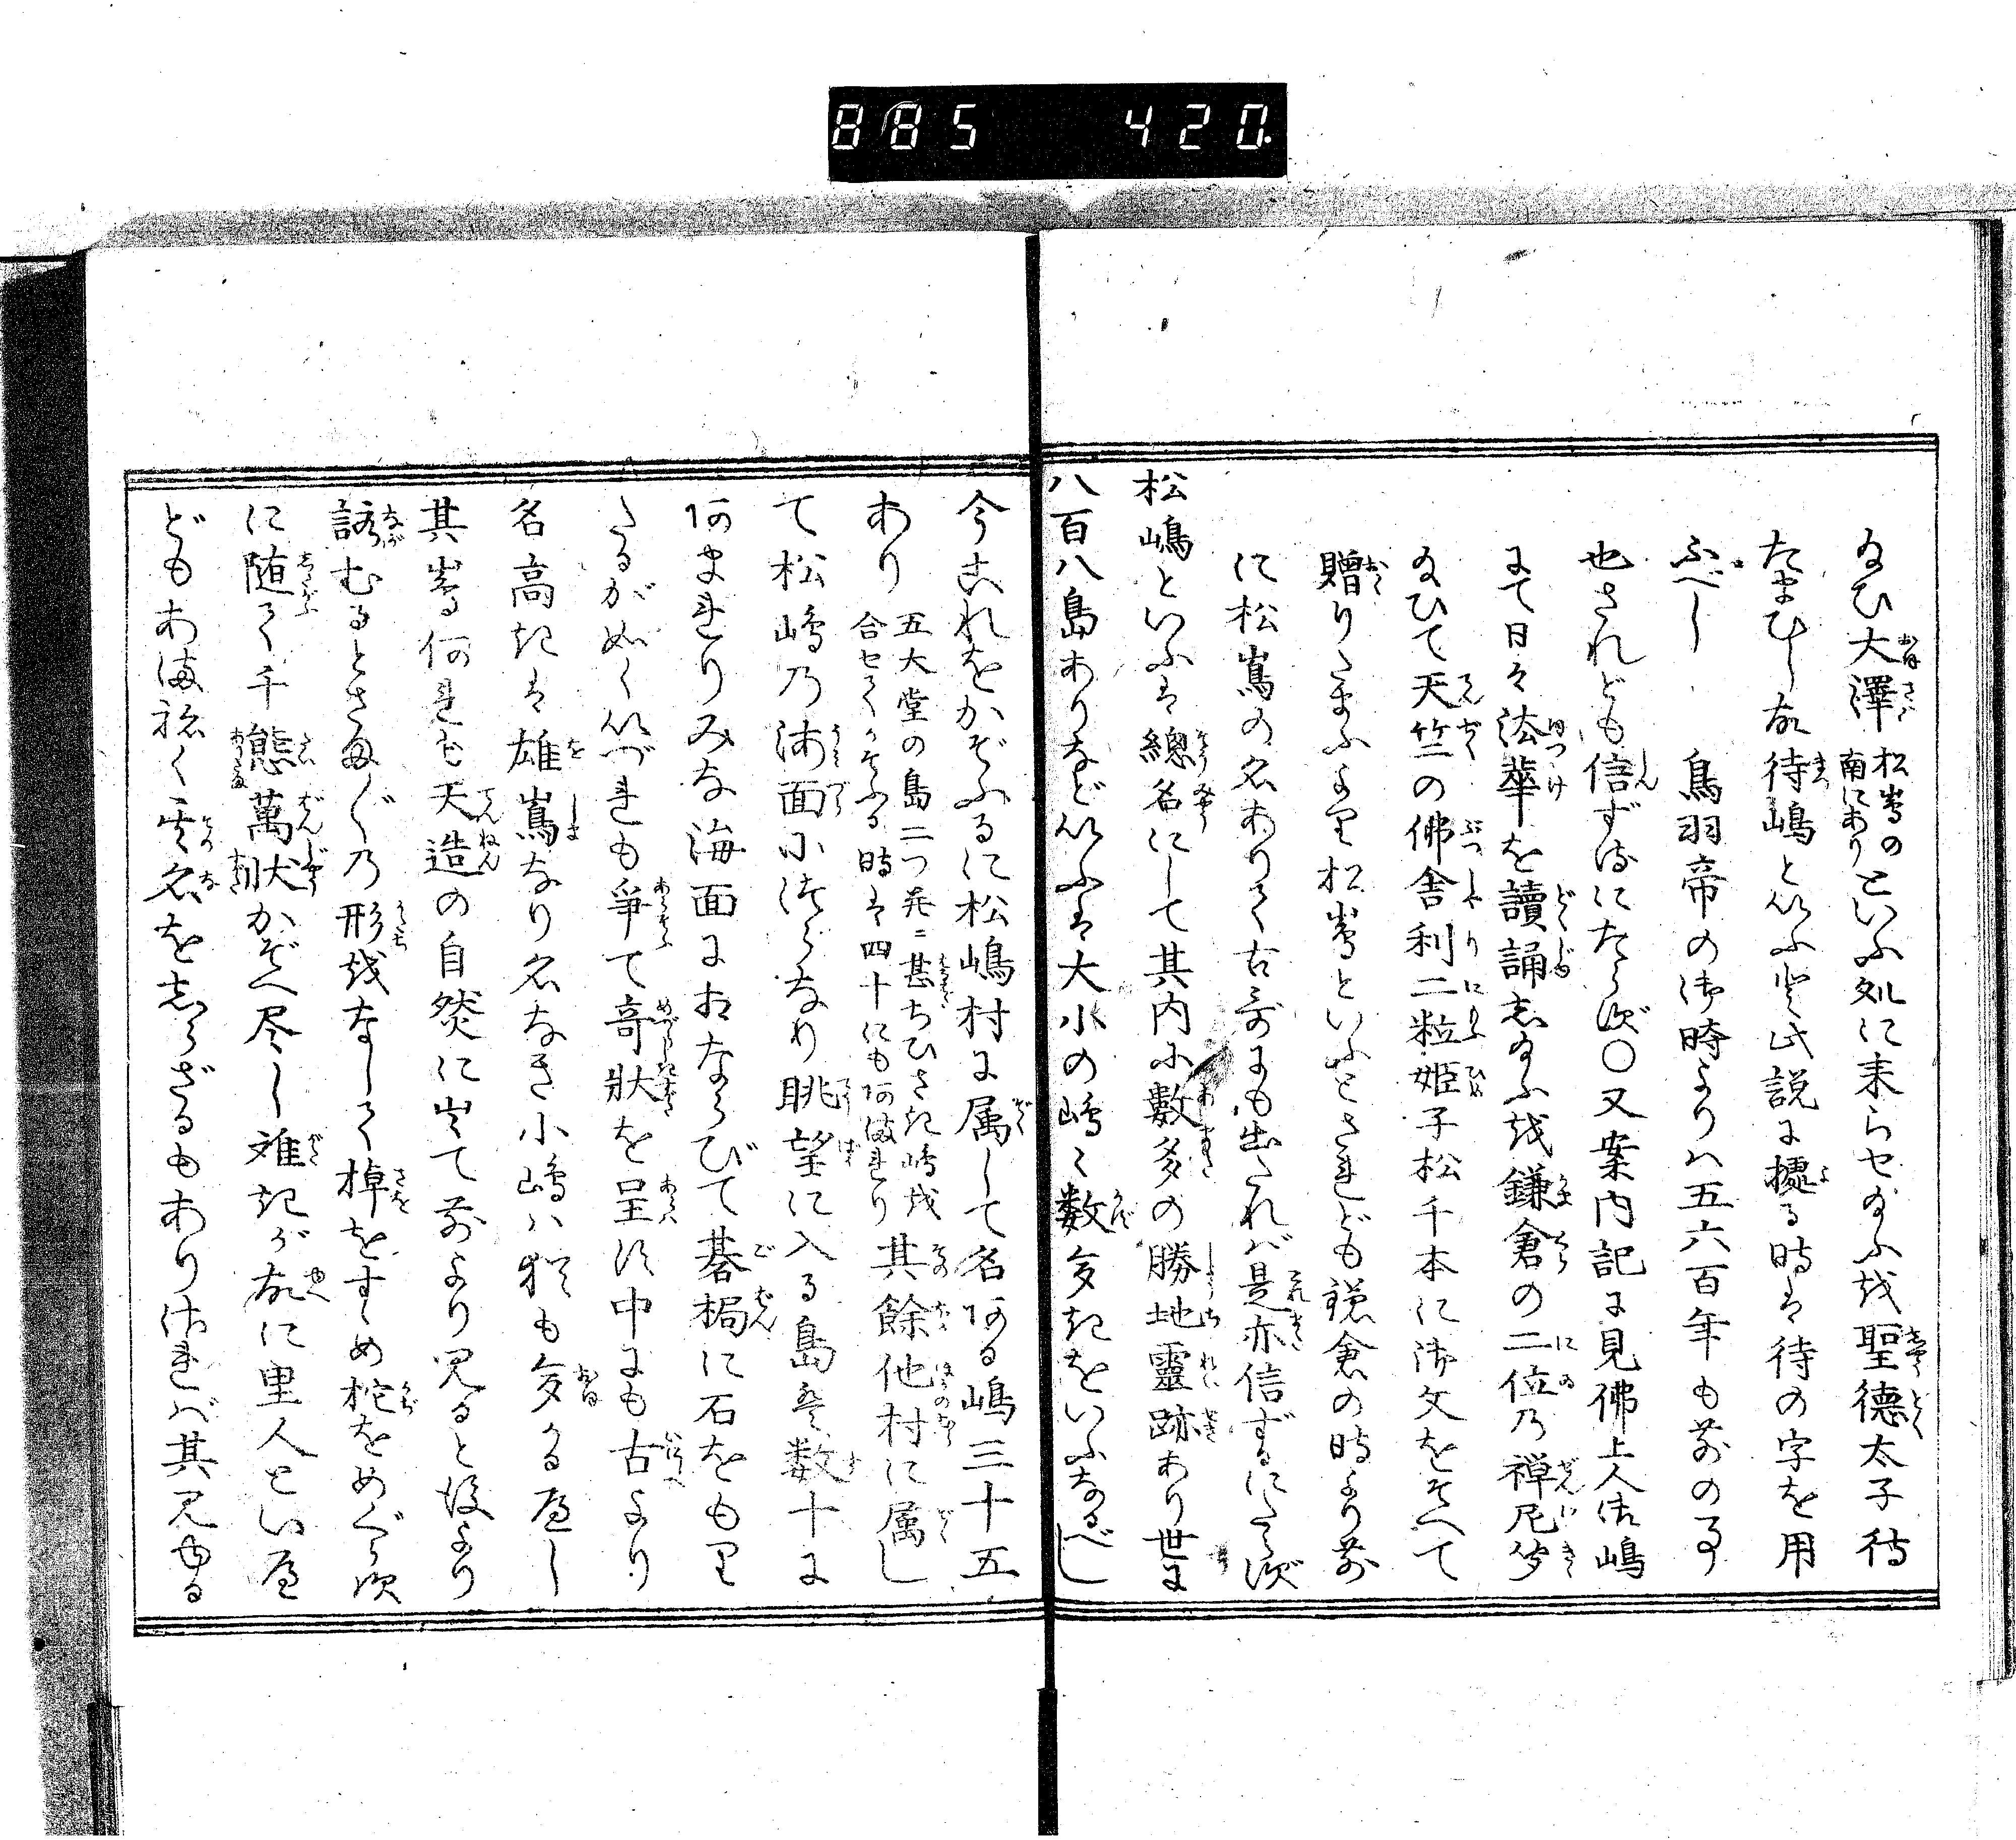 885 420
給ひ大澤松嶌の南にありといふ処に来らせ給ふを聖徳太子待
たまひし故待嶋といふと此説に據る時は待の字を用
ふべし 鳥羽帝の御時よりハ五六百年も前の事
也されども信ずるにたらず〇又案内記に見佛上人此嶋
にて日々法華を讀誦し給ふを鎌倉の二位の禅尼
給ひて天竺の佛舎利二粒姫子松千本に御文をそへて
贈りたまふより松嶌といふとされども鎌倉の時より前
に松嶌の名ありて古哥にも出たれバ是亦信ずるにたらず
松嶋といふは總名にして其内に數多の勝地靈跡あり世に
八百八島ありなどいふは大小の嶋々数多きをいふなるべし
今これをかぞふるに松嶋村に属して名ある嶋三十五
あり
五大堂の島二つ并ニ甚ちひさき嶋を
合せてかぞふる時は四十にもあまれり
其餘他村に属し
て松嶋の海面につらなり眺望に入る島々数十に
あまれりみな海面におならびて碁楊に石をもり
たるが如くいづれも爭て奇状を呈す中にも古より
名高きは雄嶌なり名なき小嶋ハ猶も多かるべし
其嶌何れも天造の自然に出て前より見ると後より
詠むるとさまざまの形をなして棹をすゝめ柁をめぐらす
に随て千態萬状かぞへ尽し難きが故に里人といへ
どもあまねく其名をしらざるもありけれバ其見ゆる